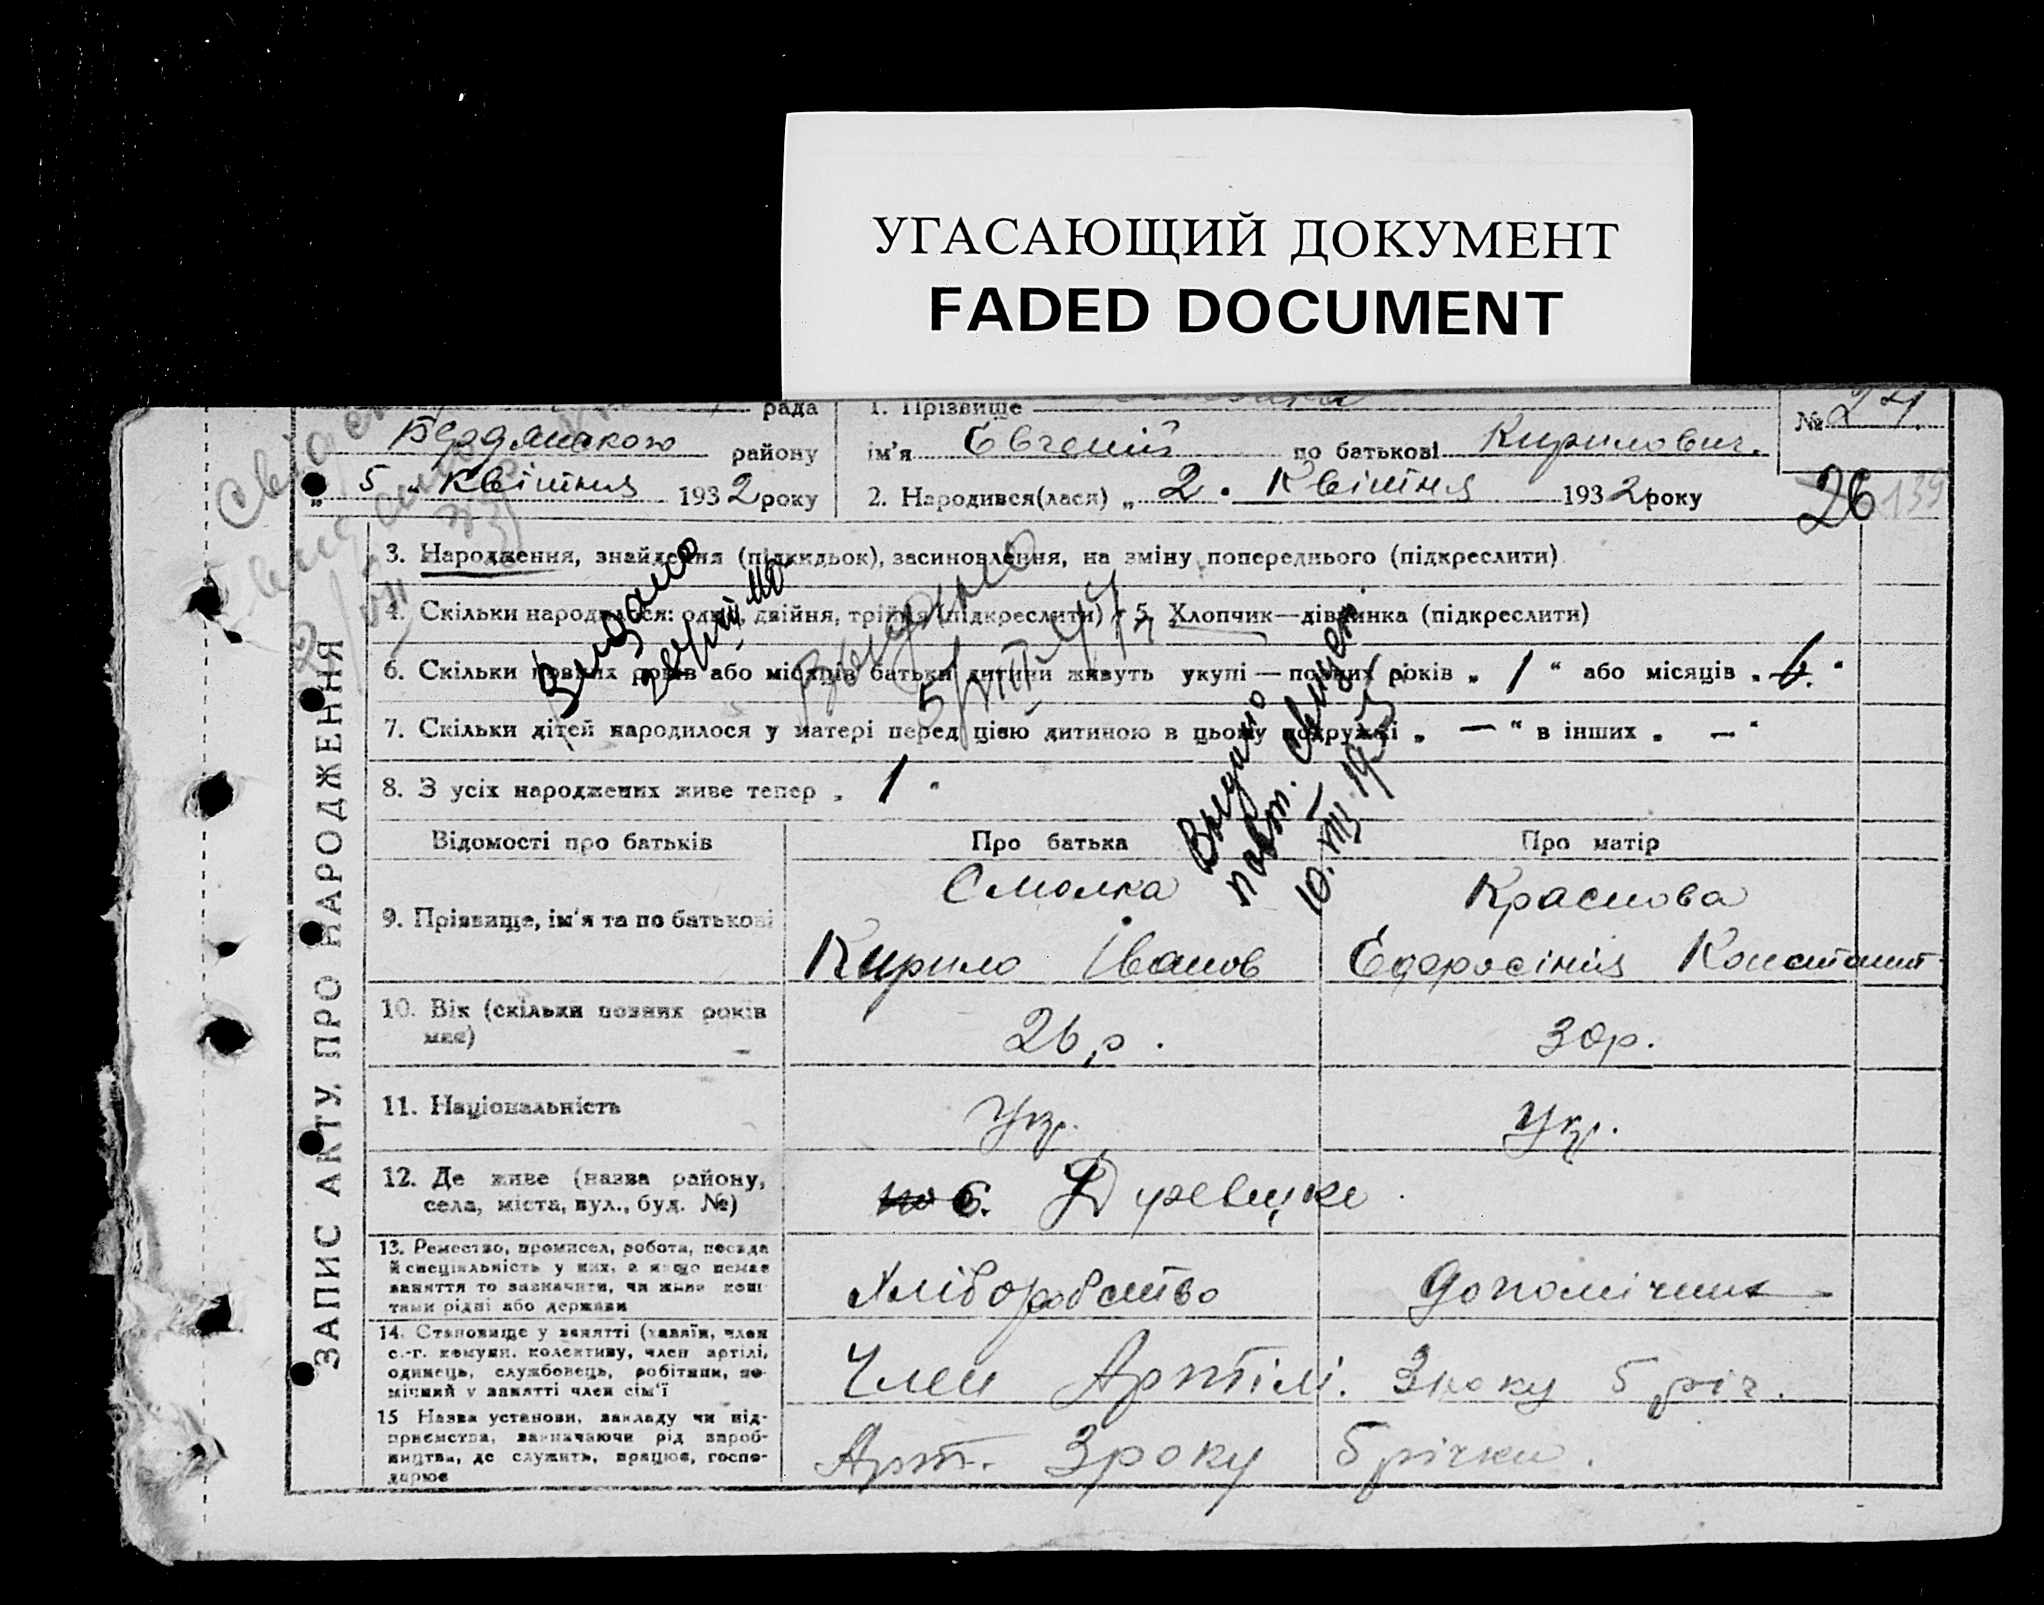 УГАСАЮЩИЙ ДОКУМЕНТ
FADED DOCUMENT
рада
1. Прізвище
№ 24.
Бердянского району
ім'я Євгеній по батькові Кирилович.
„ 5 „ Квітня 1932 року
2. Народився(лася) „ 2. Квітня 1932 року
26
139
ЗАПИС АКТУ ПРО НАРОДЖЕННЯ
3. Народження, знайдення (підкидьок), засиновлення, на зміну попереднього (підкреслити)
4. Скільки народилося: одно, двійня, трійня (підкреслити) 5. Хлопчик—дівчинка (підкреслити)
6. Скільки повних років або місяців батьки дитини живуть укупі — повних років „ 1 “ або місяців „ 6. “
7. Скільки дітей народилося у матері перед цією дитиною в цьому подружжі „ — “ в інших „ — “
8. З усіх народжених живе тепер „ 1 “
Видано
Выдано
5/VIII-44
Выдано
повт. свидет.
10.VIII.195
Відомості про батьків
Про батька
Про матір
9. Прізвище, ім'я та по батькові
Смолка
Кирило Іванов
Краснова
Єфросінія Константинт
10. Вік (скільки повних років має)
26 р.
30р.
11. Національність
Укр.
Укр.
12. Де живе (назва району,
села, міста, вул., буд. №)
с.
13. Ремество, промисел, робота, посада
й спеціяльність у них, а якщо немає
заняття то зазначити, чи живе кош-
тами рідні або держави
Хліборобство
Допомічник
14. Становище у занятті (хазяїн, член
с.-г. комуни, колективу, член артілі,
одинець, службовець, робітник, по-
мічний у занятті член сім'ї
Член Артілі. Зроку 5 річ.
15 Назва установи, закладу чи під-
приємства, зазначаючи рід вироб-
ництва, де служить, працює, госпо-
дарює
Арт. Зроку 5 річки.